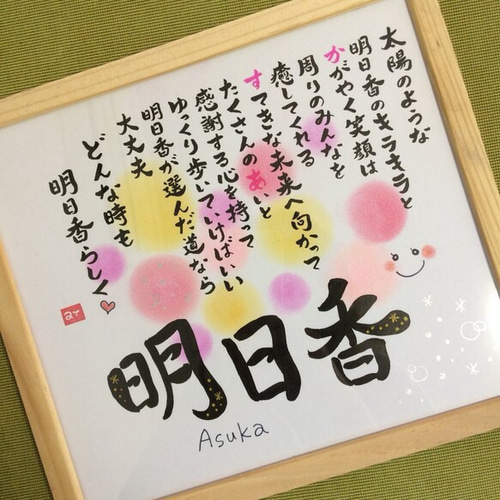 太陽のような
明日香のキラキラと
かがやく笑顔は
周りのみんなを
癒してくれる
すてきな未来へ向かって
たくさんのあいと
感謝する心を持って
ゆっくり歩いていけばいい
明日香が選んだ道なら
大丈夫
どんな時も
明日香らしく
明日香
Asuka